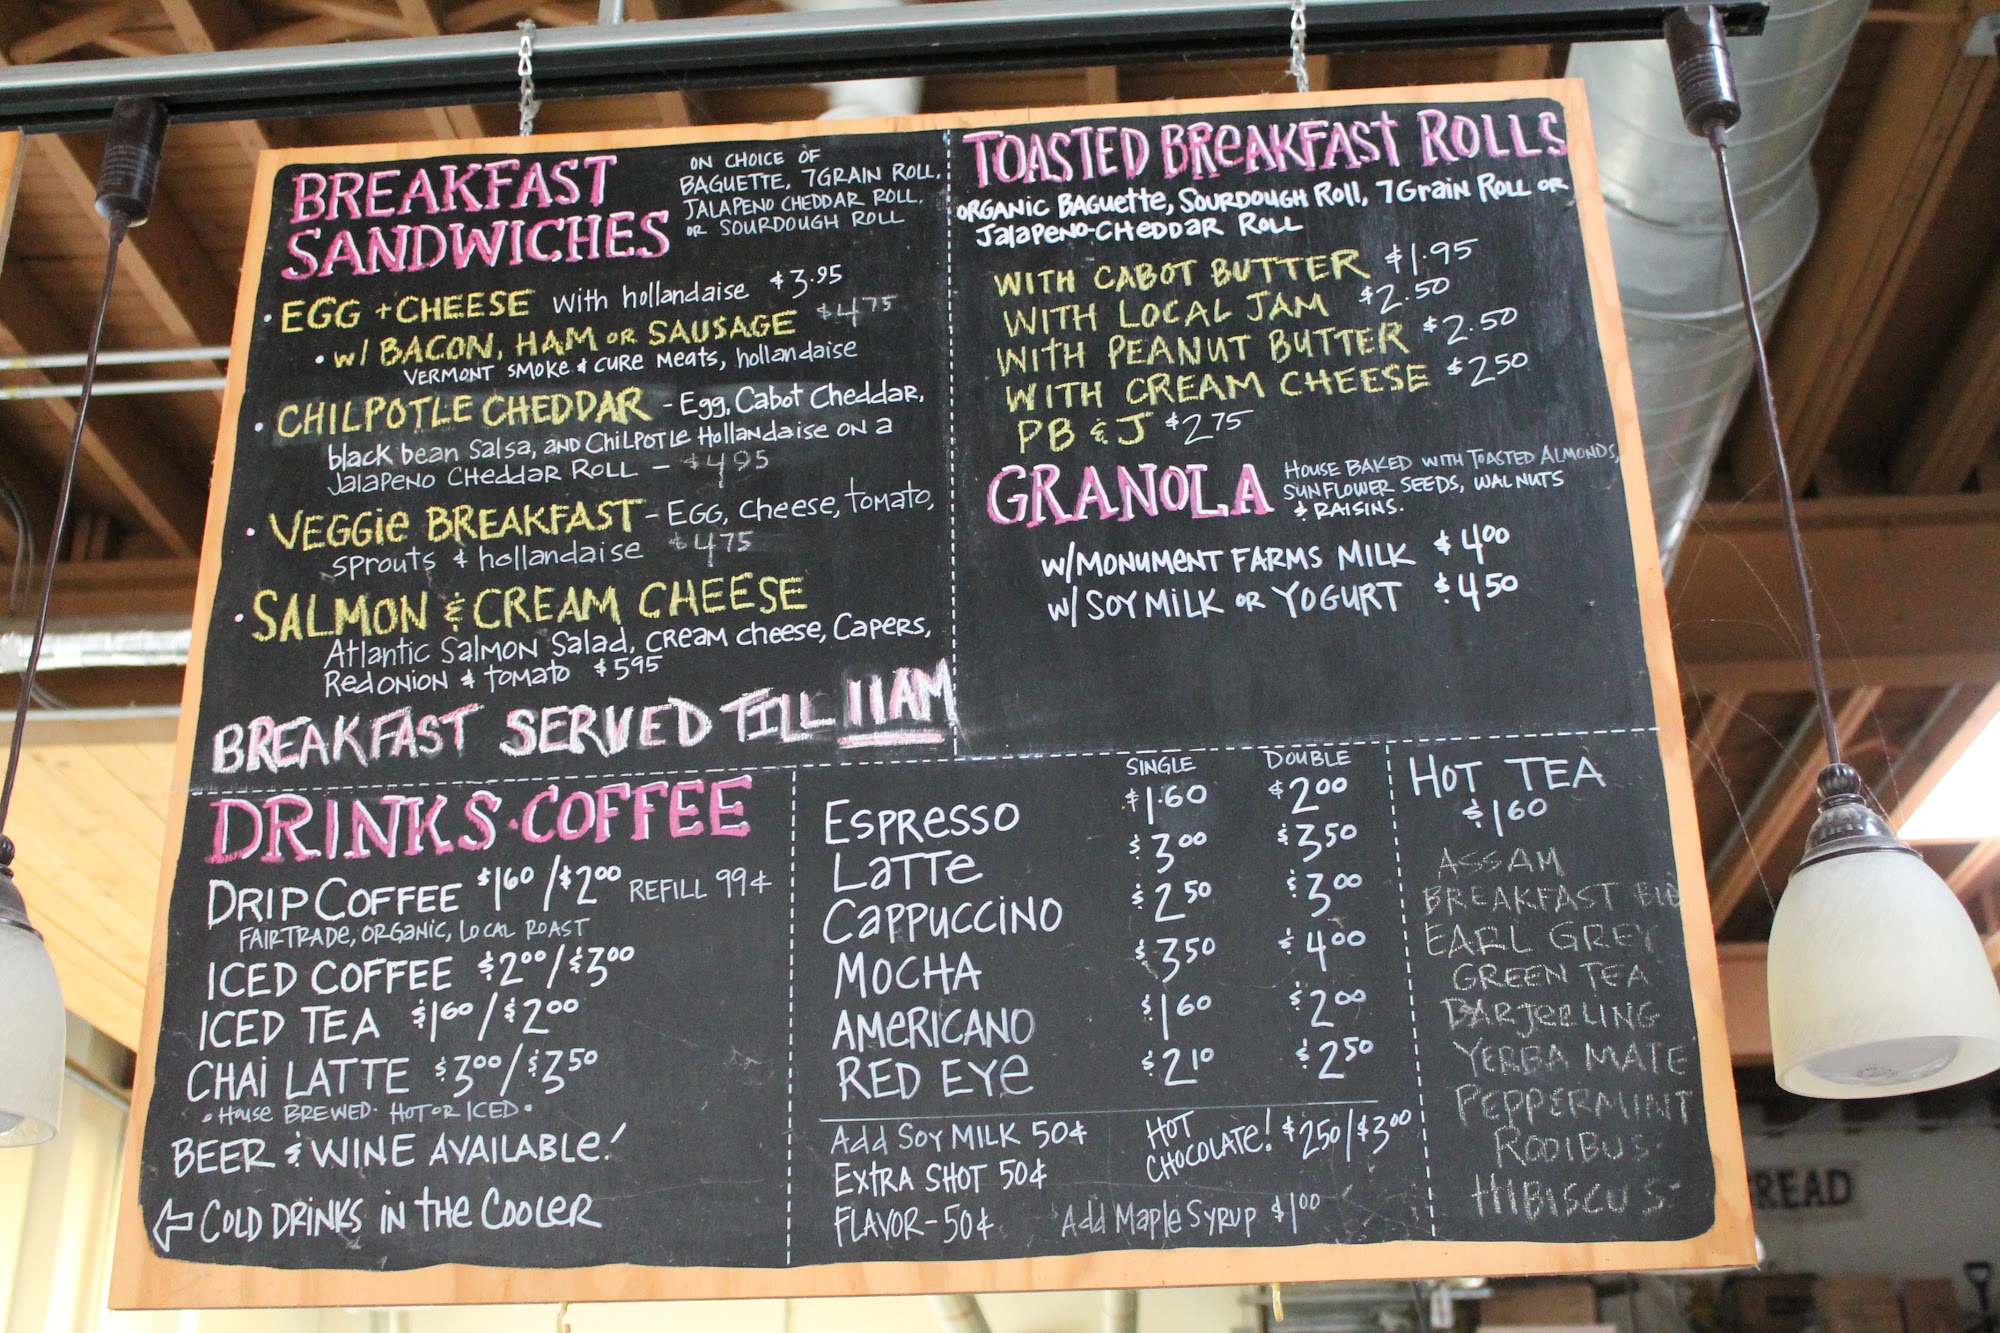 BREAKFAST
SANDWICHES
ON CHOICE OF
BAGUETTE, 7GRAIN ROLL,
JALAPENO CHEDDAR ROLL,
OR SOURDOUGH ROLL
• EGG + CHEESE with hollandaise $3.95
• w/ BACON, HAM OR SAUSAGE $4.75
VERMONT SMOKE & CURE Meats, hollandaise
• CHILPOTLE CHEDDAR - Egg, Cabot Cheddar,
black bean Salsa, AND CHILPOTLE Hollandaise ON a
Jalapeno Cheddar Roll - $4.95
• VEGGIE BREAKFAST - EGG, cheese, tomato,
sprouts & hollandaise $4.75
• SALMON & CREAM CHEESE
Atlantic Salmon Salad, cream cheese, Capers,
Red Onion & tomato $5.95
BREAKFAST SERVED TILL 11AM
TOASTED BREAKFAST ROLLS
ORGANIC BAGUETTE, SOURDOUGH ROLL, 7GRAIN ROLL OR
Jalapeno-CHEDDAR ROLL
WITH CABOT BUTTER $1.95
WITH LOCAL JAM $2.50
WITH PEANUT BUTTER $2.50
WITH CREAM CHEESE $2.50
PB & J $2.75
GRANOLA
HOUSE BAKED WITH TOASTED ALMONDS,
SUNFLOWER SEEDS, WALNUTS
& RAISINS.
w/MONUMENT FARMS MILK $4.00
w/SOYMILK OR YOGURT $4.50
DRINKS · COFFEE
DRIP COFFEE $1.60/$2.00 REFILL 99¢
FAIRTRADE, ORGANIC, LOCAL ROAST
ICED COFFEE $2.00/$3.00
ICED TEA $1.60/$2.00
CHAI LATTE $3.00/$3.50
• HOUSE BREWED · HOT OR ICED •
BEER & WINE AVAILABLE!
← COLD DRINKS IN the COOLER
SINGLE DOUBLE
ESPRESSO $1.60 $2.00
LATTE $3.00 $3.50
CAPPUCCINO $2.50 $3.00
MOCHA $3.50 $4.00
AMERICANO $1.60 $2.00
RED EYE $2.10 $2.50
Add SOY MILK 50¢
EXTRA SHOT 50¢
FLAVOR - 50¢
HOT
CHOCOLATE! $2.50/$3.00
Add Maple Syrup $1.00
HOT TEA
$1.60
ASSAM
BREAKFAST
EARL GREY
GREEN TEA
DARJEELING
YERBA MATE
PEPPERMINT
ROOIBUS
HIBISCUS
READ